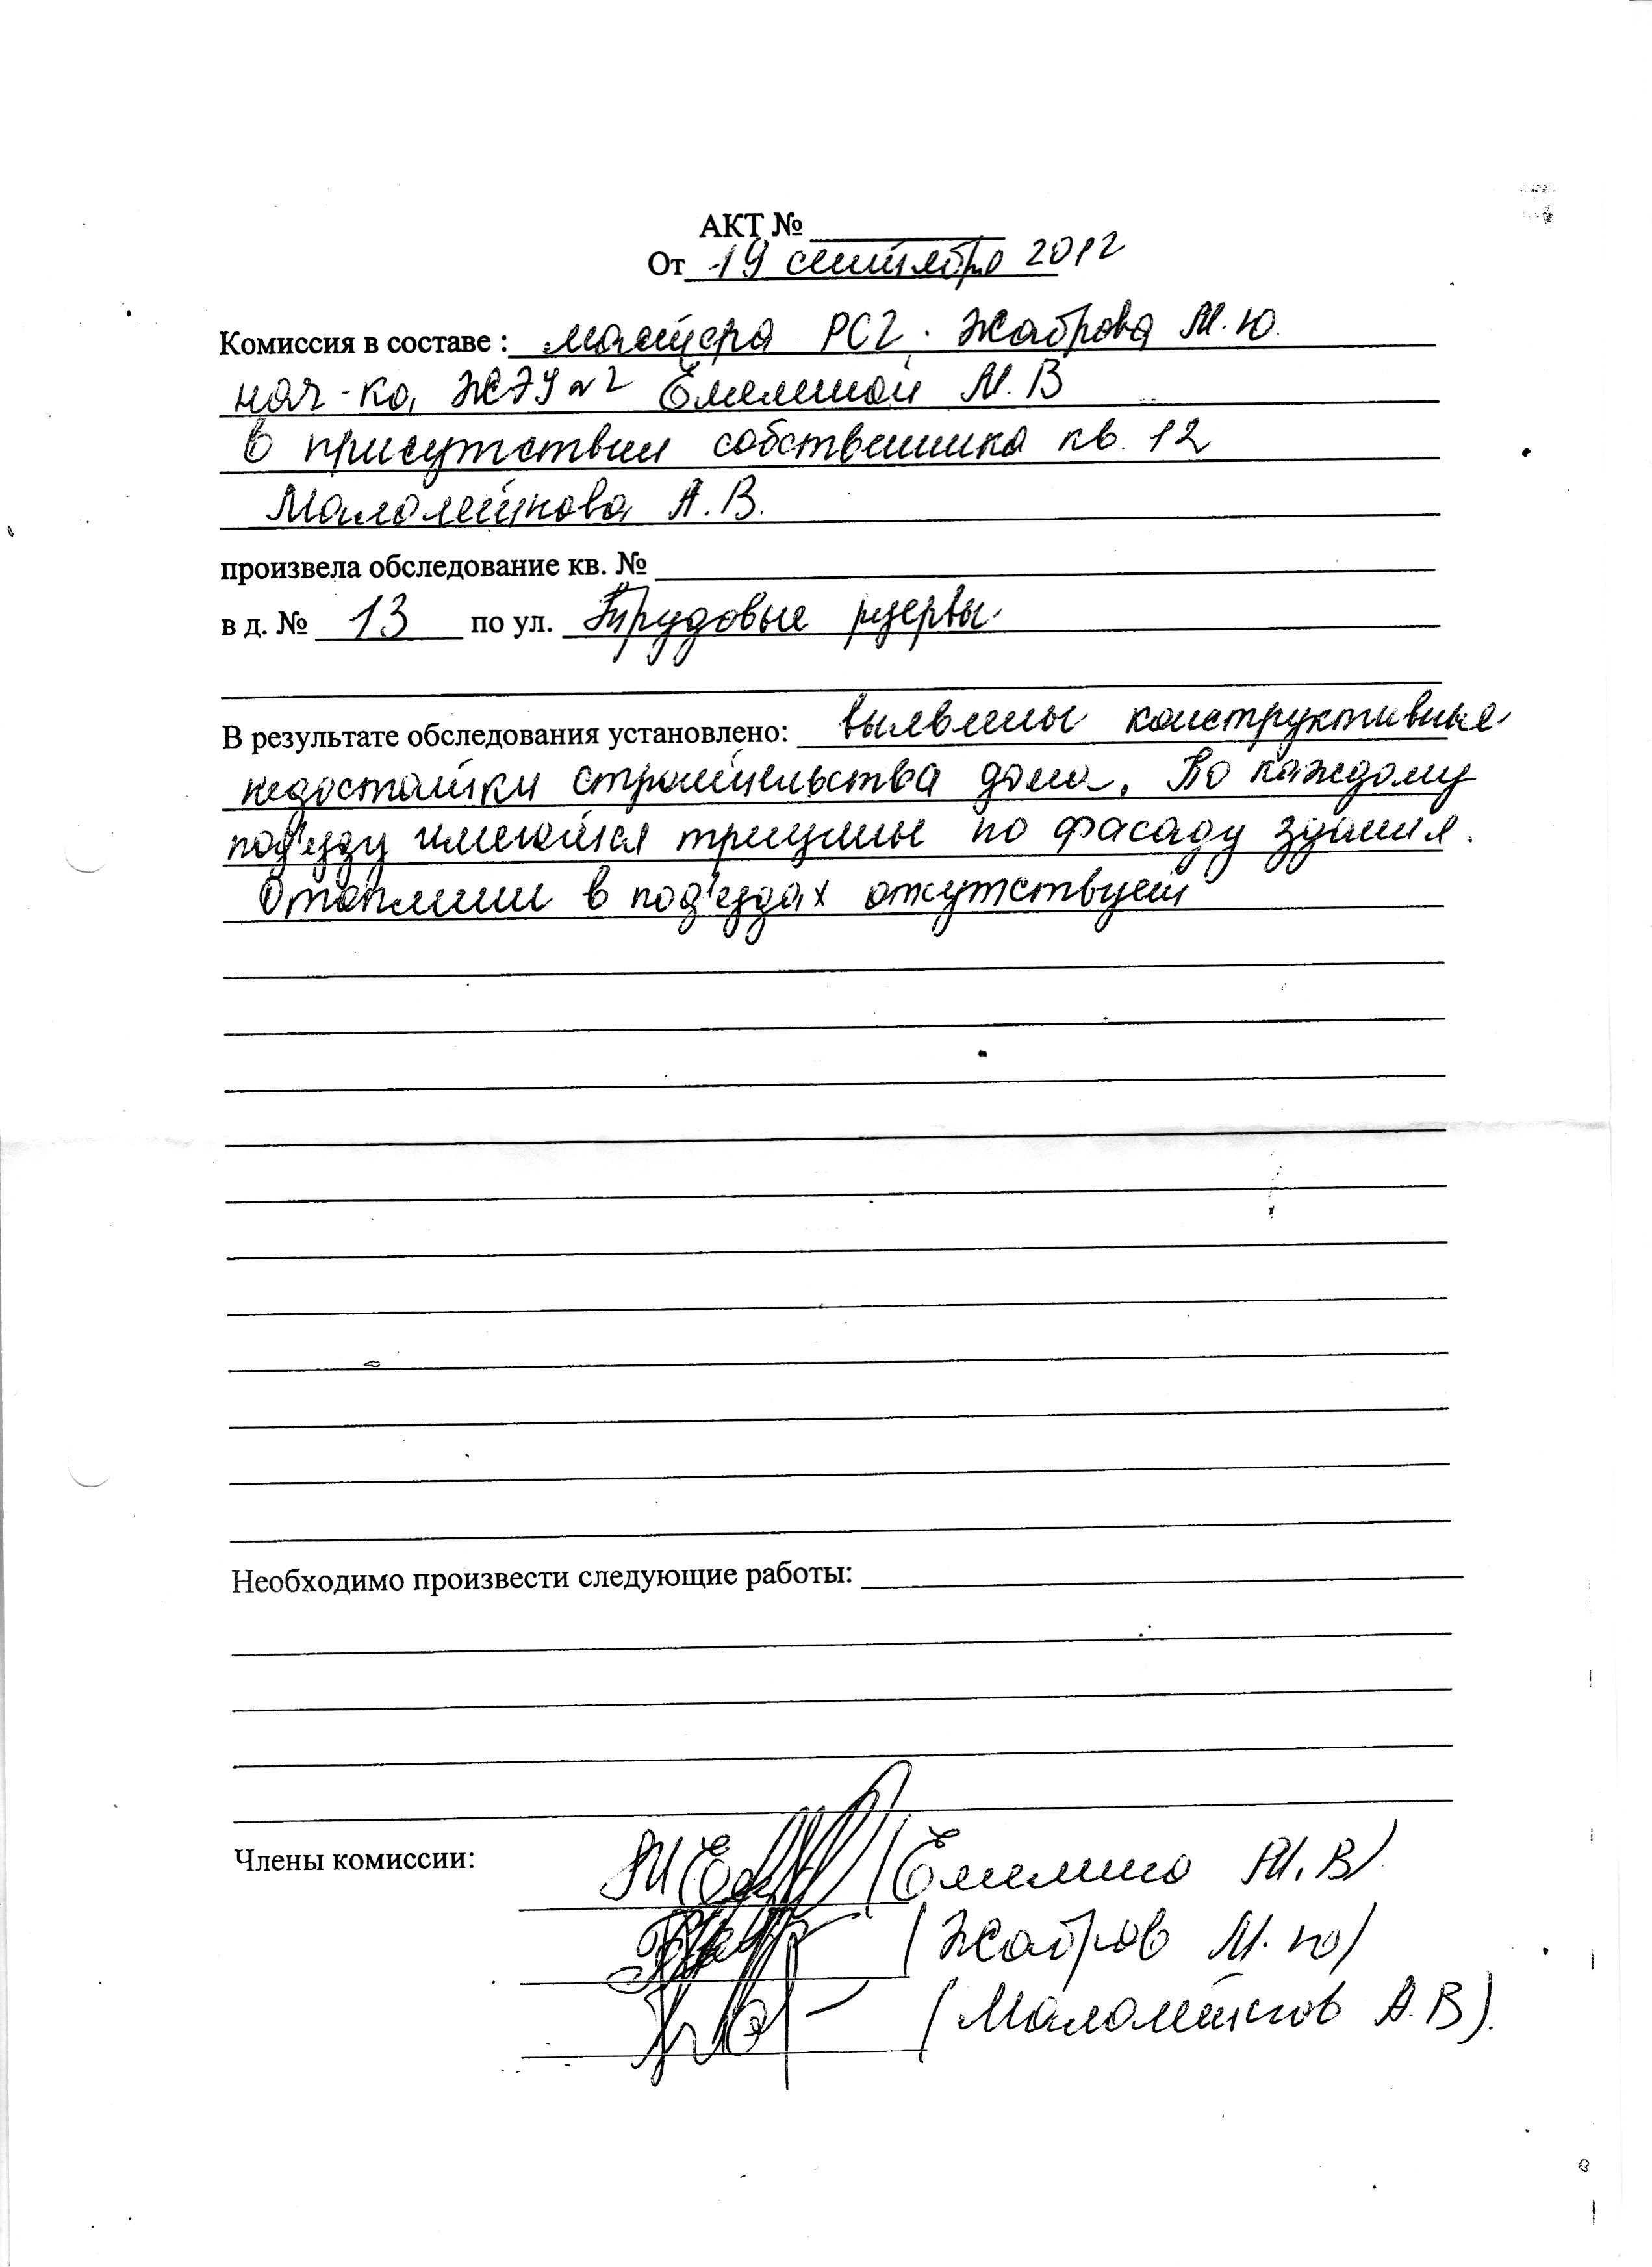 АКТ №
От 19 сентября 2012
Комиссия в составе : мастера РС2. Жаброва М.Ю.
нач-ка, ЖЭУ №2 Емелиной М.В
в присутствии собственника кв. 12
Малолеткова А.В.
произвела обследование кв. №
в д. № 13 по ул. Трудовые резервы.
В результате обследования установлено: выявлены конструктивные
недостатки строительства дома. По каждому
под'езду имеются трещины по фасаду здания.
Отопление в под'ездах отсутствует
Необходимо произвести следующие работы:
Члены комиссии: (Емелина М.В)
(Жабров М.Ю)
(Малолетков А.В).